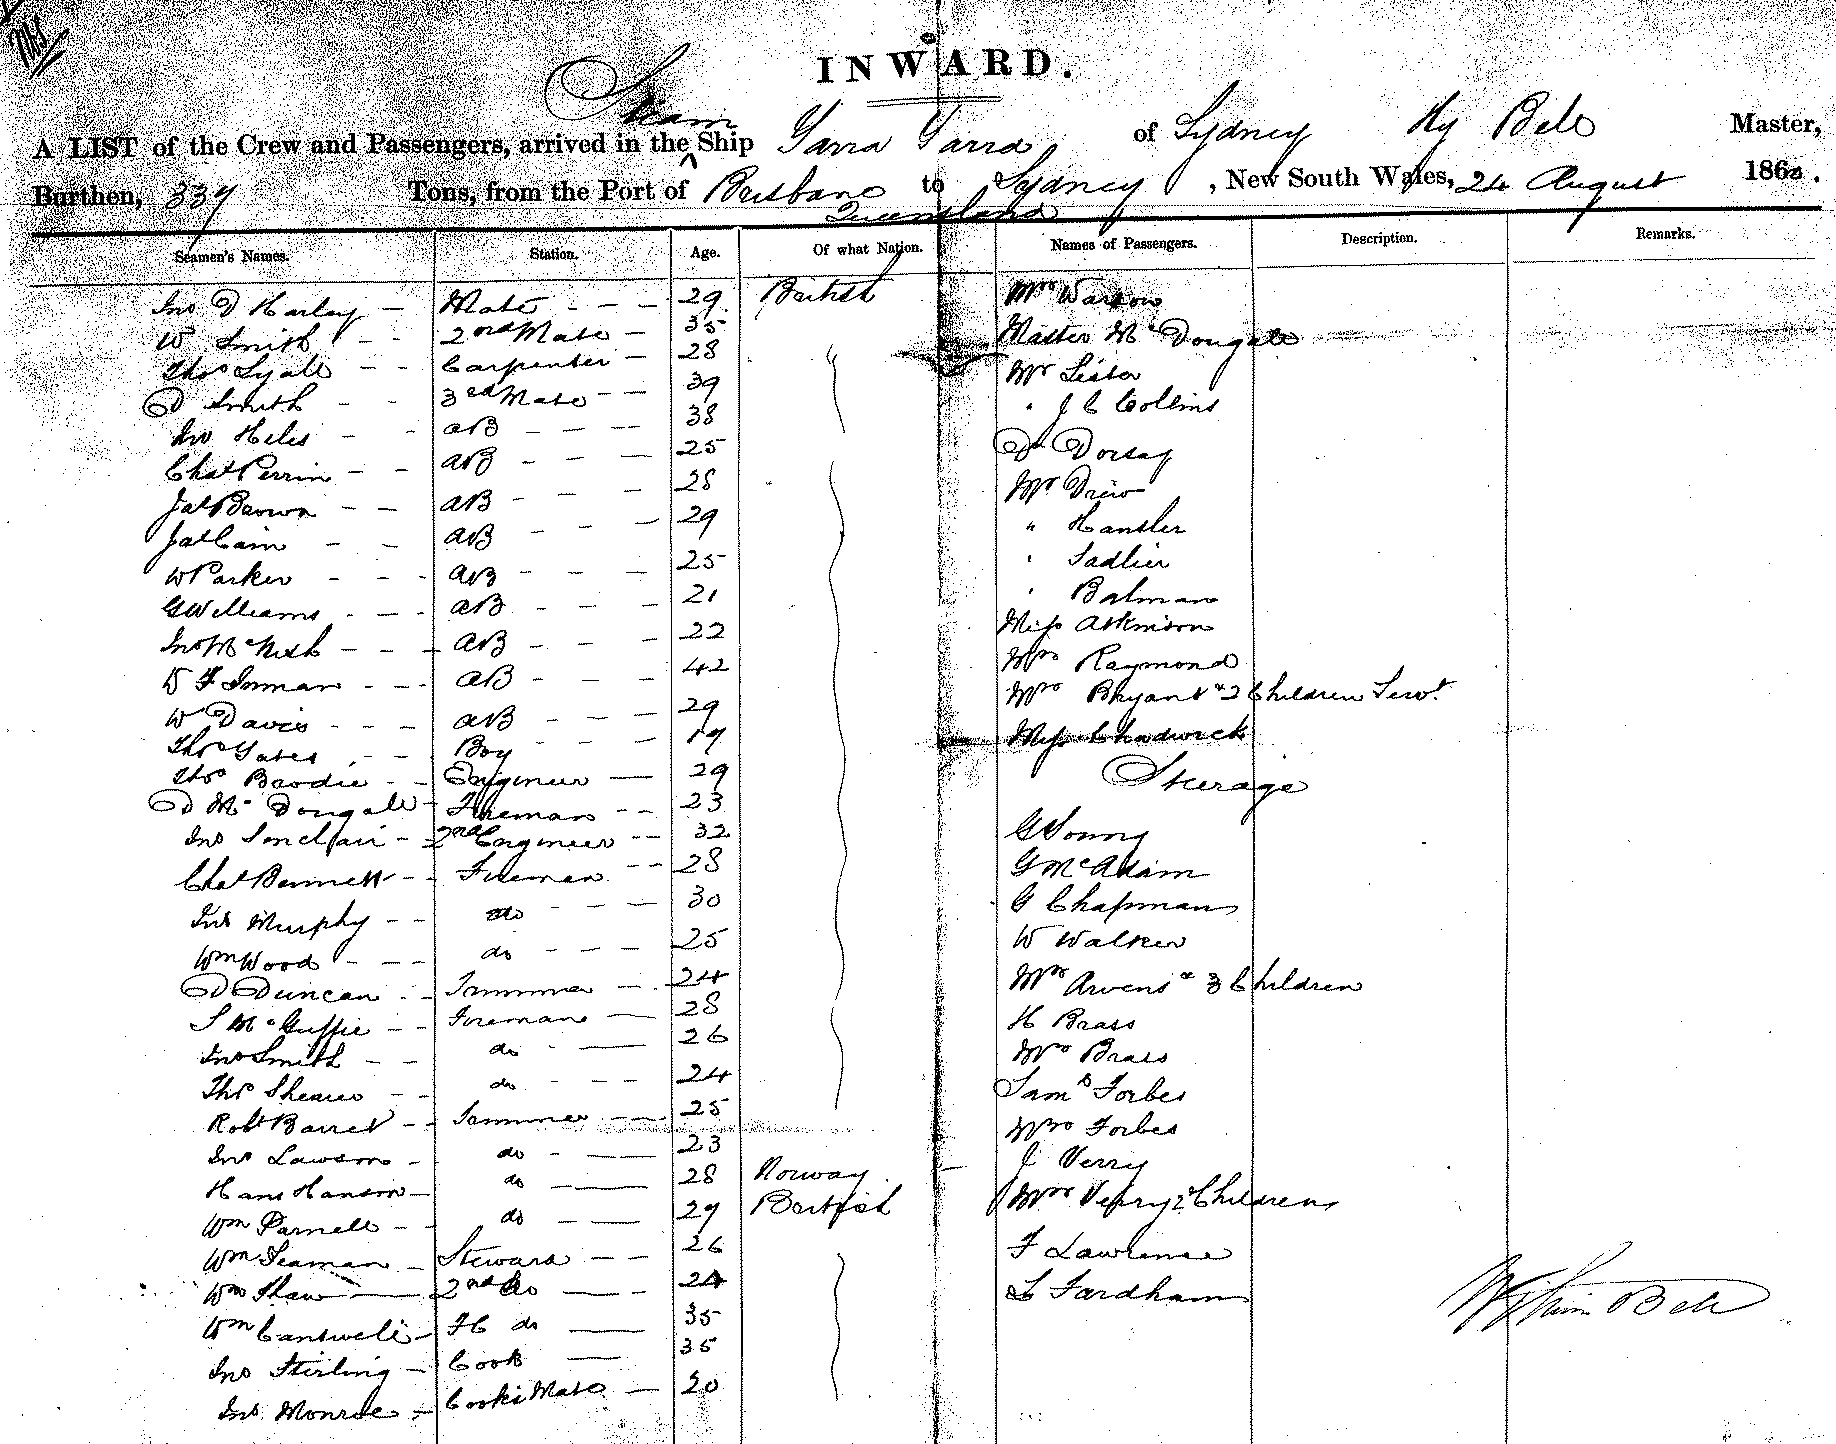 INWARD.
Steam
A LIST of the Crew and Passengers, arrived in the ^ Ship Yarra Yarra of Sydney Hy Bell Master,
Burthen, 337 Tons, from the Port of Brisbane to Sydney, New South Wales, 24 August 186
Queensland
Seamen's Names. Station. Age. Of what Nation. Names of Passengers. Description. Remarks.
Jno D Harley Mate 29 British
W Smith 2nd Mate 35
Thos Lyall Carpenter 28
D Smith 3rd Mate 39
Jno Heles AB 38
Chas Perrin AB 25
Jas Brown AB 28
Jas Cain AB 29
W Parker AB 25
G Williams AB 21
Jno McNish AB 22
W F Inman AB 42
W Davis AB 29
Thos Yates Boy 19
Thos Brodie Engineer 29
D McDougall Fireman 23
Jno Sinclair 2nd Engineer 32
Chas Bennett Fireman 28
Jno Murphy do 30
Wm Wood do 25
D Duncan Trimmer 24
S McGuffie Fireman 28
Jno Smith do 26
Thos Shearer do 24
Robt Barret Trimmer 25
Jno Lawson do 23
Hans Hanson do 28 Norway
Wm Parnell do 29 British
Wm Seaman Steward 26
Wm Shaw 2nd do 24
Wm Cantwell FC do 35
Jno Stirling Cook 35
Jno Monroe Cooks Mate 20
Mrs
Master McDougall
Mr Lister
" J C Collins
Dr Dorsay
Mr Drew
" Hansler
" Sadlier
" Balman
Miss Atkinson
Mrs Raymond
Mrs Bryant & 2 Children Servt
Miss Chadwick
Steerage
G Young
G McAdam
G Chapman
W Walker
Mrs Arvens & 3 Children
H Brass
Mrs Brass
Saml Forbes
Mrs Forbes
J Verry
Mrs Verry 2 Children
F Lawrence
L Fardham
William Bell